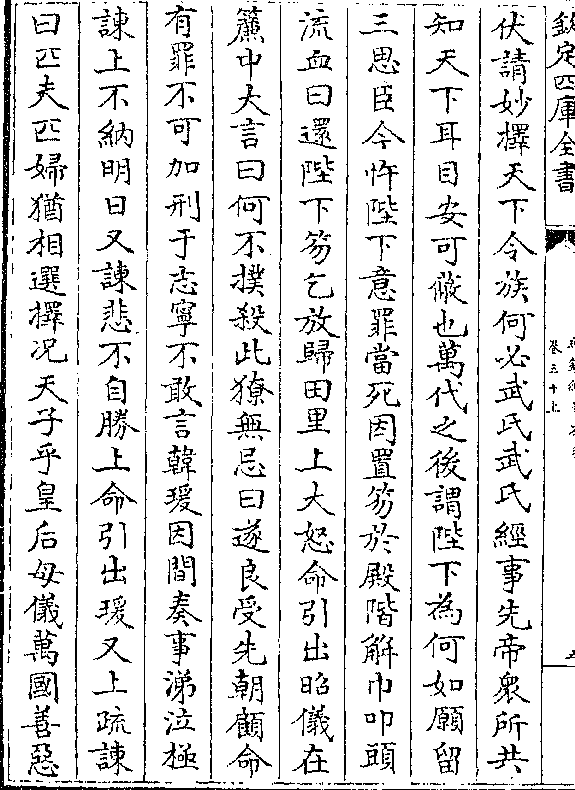 欽定四庫全書
卷三十上
伏請妙擇天下令族何必武氏武氏經事先帝衆所共
知天下耳目安可蔽也萬代之後謂陛下為何如願留
三思臣今忤陛下意罪當死因置笏於殿階解巾叩頭
流血曰還陛下笏乞放歸田里上大怒命引出昭儀在
簾中大言曰何不撲殺此獠無忌曰遂良受先朝顧命
有罪不可加刑于志寧不敢言韓瑗因間奏事涕泣極
諫上不納明日又諫悲不自勝上命引出瑗又上疏諫
曰匹夫匹婦猶相選擇况天子乎皇后母儀萬國善惡